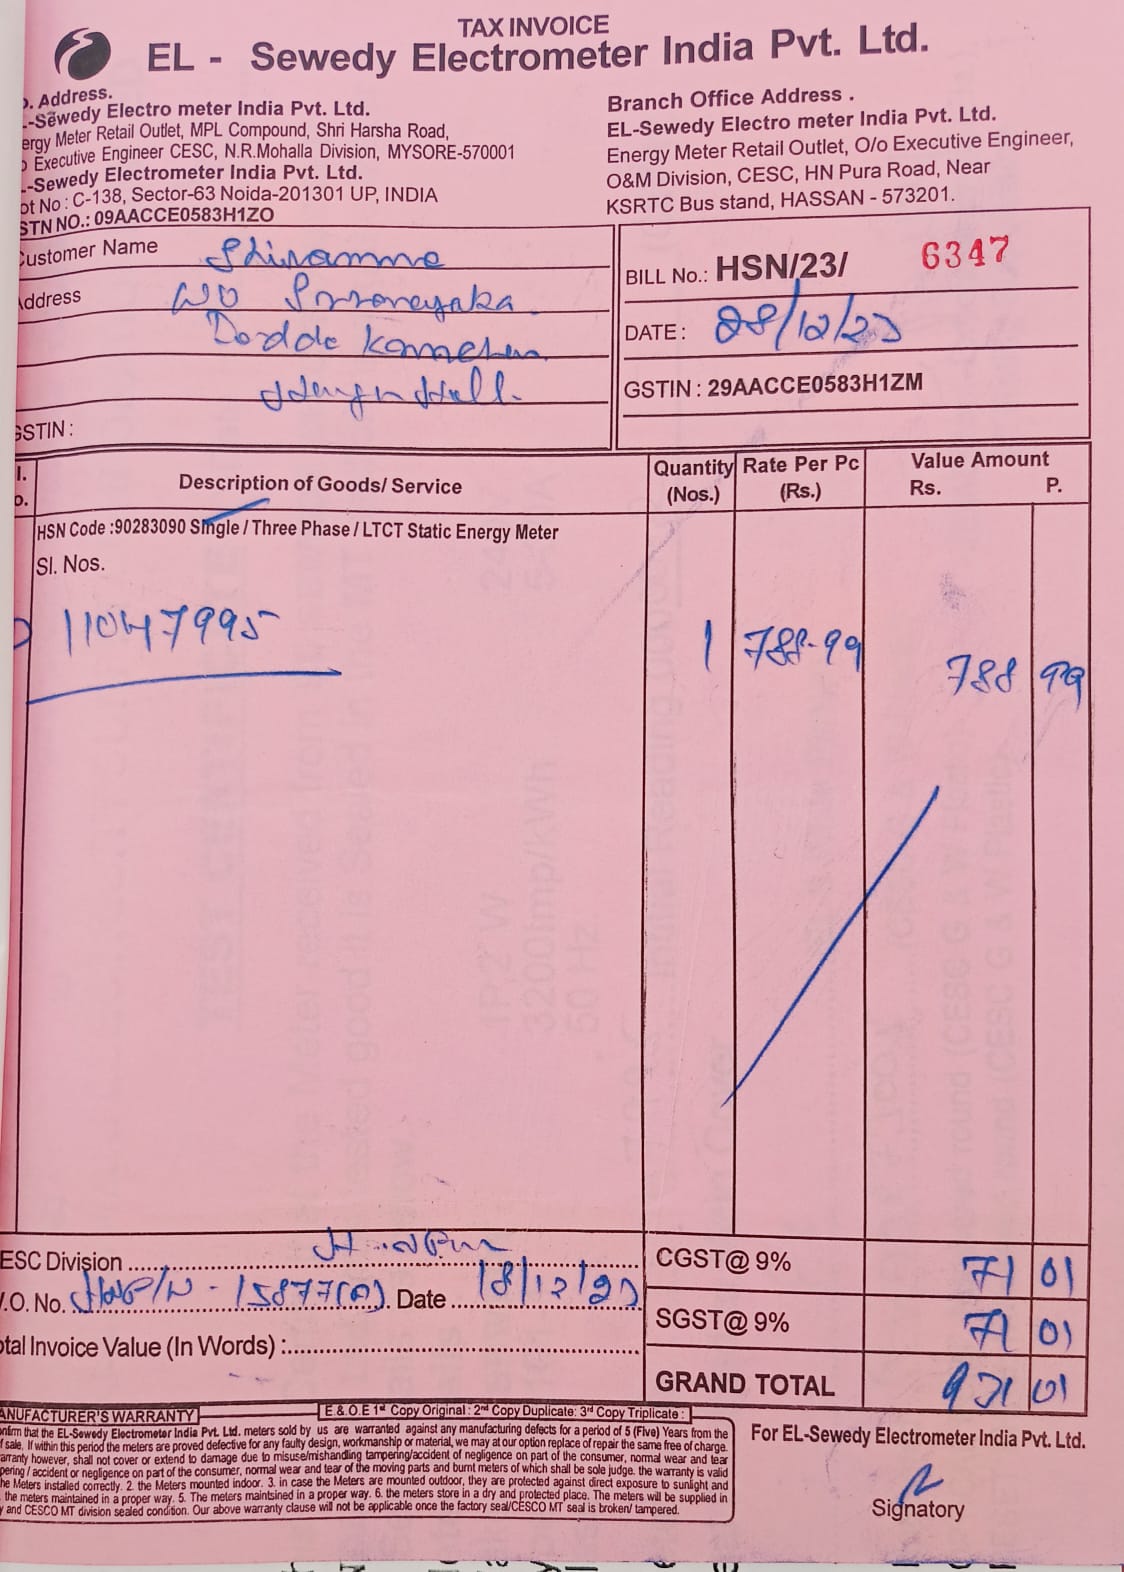 TAX INVOICE
EL - Sewedy Electrometer India Pvt. Ltd.
. Address.
-Sewedy Electro meter India Pvt. Ltd.
ergy Meter Retail Outlet, MPL Compound, Shri Harsha Road,
Executive Engineer CESC, N.R.Mohalla Division, MYSORE-570001
-Sewedy Electrometer India Pvt. Ltd.
ot No : C-138, Sector-63 Noida-201301 UP, INDIA
STN NO.: 09AACCE0583H1ZO
Branch Office Address .
EL-Sewedy Electro meter India Pvt. Ltd.
Energy Meter Retail Outlet, O/o Executive Engineer,
O&M Division, CESC, HN Pura Road, Near
KSRTC Bus stand, HASSAN - 573201.
ustomer Name
ddress W/O
Dodda
GSTIN :
BILL No.: HSN/23/ 6347
DATE : 28/12/23
GSTIN : 29AACCE0583H1ZM
l. Description of Goods/ Service Quantity Rate Per Pc Value Amount
o. (Nos.) (Rs.) Rs. P.
HSN Code :90283090 Single / Three Phase / LTCT Static Energy Meter
Sl. Nos.
11047995 1 788-99 788 99
ESC Division
.O. No. 15877 Date 18/12/23
otal Invoice Value (In Words) :
CGST@ 9% 71 01
SGST@ 9% 71 01
GRAND TOTAL 931 01
E & O E 1st Copy Original : 2nd Copy Duplicate: 3rd Copy Triplicate :
ANUFACTURER'S WARRANTY
nfirm that the EL-Sewedy Electrometer India Pvt. Ltd. meters sold by us are warranted against any manufacturing defects for a period of 5 (Five) Years from the
f sale, If within this period the meters are proved defective for any faulty design, workmanship or material, we may at our option replace of repair the same free of charge.
arranty however, shall not cover or extend to damage due to misuse/mishandling tampering/accident of negligence on part of the consumer, normal wear and tear
pering / accident or negligence on part of the consumer, normal wear and tear of the moving parts and burnt meters of which shall be sole judge. the warranty is valid
he Meters installed correctly. 2. the Meters mounted indoor. 3. in case the Meters are mounted outdoor, they are protected against direct exposure to sunlight and
the meters maintained in a proper way. 5. The meters maintained in a proper way. 6. the meters store in a dry and protected place. The meters will be supplied in
y and CESCO MT division sealed condition. Our above warranty clause will not be applicable once the factory seal/CESCO MT seal is broken/ tampered.
For EL-Sewedy Electrometer India Pvt. Ltd.
Signatory